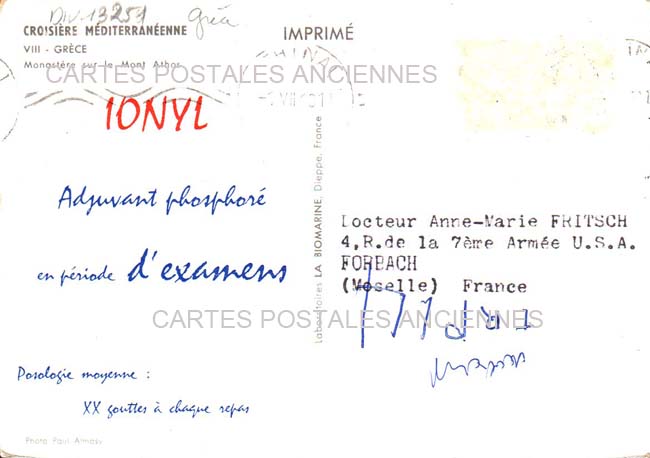 DIV-13251
CROISIÈRE MÉDITERRANÉENNE
VIII - GRÈCE
Monastère sur le Mont Athos
IMPRIMÉ
CARTES POSTALES ANCIENNES
IONYL
Adjuvant phosphoré
en période d'examens
Posologie moyenne :
XX gouttes à chaque repas
Photo Paul Almasy
Laboratoires LA BIOMARINE, Dieppe, France
Locteur Anne-Marie FRITSCH
4,R.de la 7ème Armée U.S.A.
FORBACH
(Moselle) France
CARTES POSTALES ANCIENNES